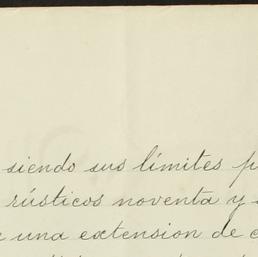 siendo sus límites
rústicos noventa y
una extension de